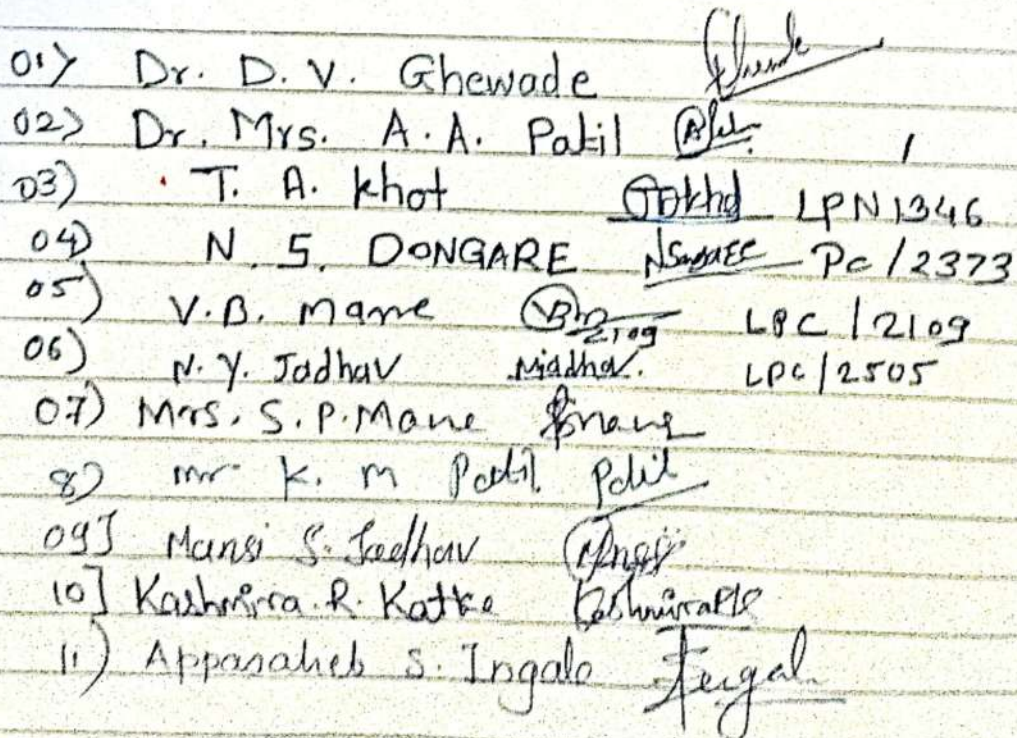 01) Dr. D. V. Ghewade
02) Dr. Mrs. A. A. Patil
03) T. A. Khot LPN1346
04) N. S. DONGARE PC/2373
05) V.B. Mane 2109 LPC/2109
06) N. Y. Jadhav NJadhav. LPC/2505
07) Mrs. S. P. Mane SMane
8) mr K. m Patil Patil
09] Mansi S. Jadhav
10] Kashmirra. R. Katke
11) Appasaheb S. Ingale